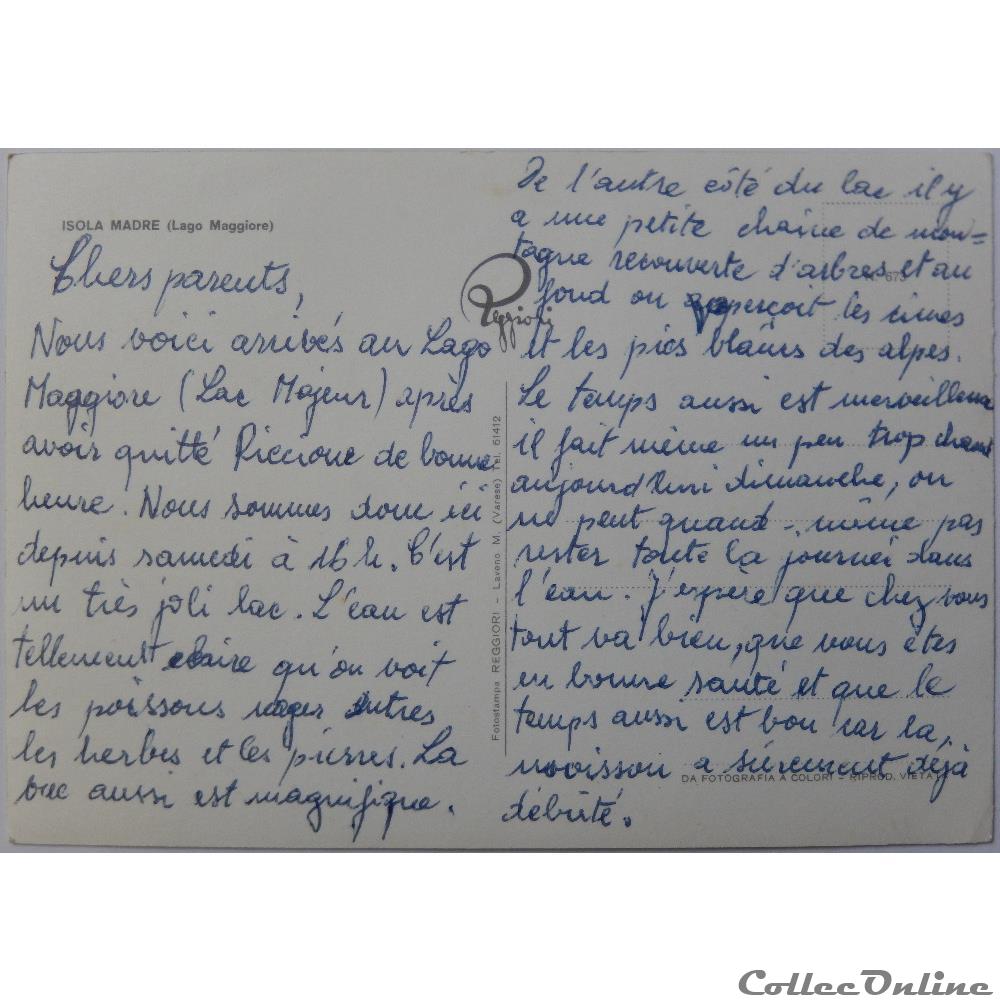 ISOLA MADRE (Lago Maggiore)
Chers parents,
Nous voici arrivés au Lago
Maggiore (Lac Majeur) après
avoir quitté Riccione de bonne
heure. Nous sommes donc ici
depuis samedi à 16 h. C'est
un très joli lac. L'eau est
tellement claire qu'on voit
les poissons nager entres
les herbes et les pierres. La
vue aussi est magnifique.
Reggiori
Fotostampa REGGIORI - Laveno M. (Varese) Tel. 61412
De l'autre côté du lac il y
a une petite chaine de mon=
tagne recouverte d'arbres et au
fond on apperçoit les cimes
et les pics blancs des alpes.
Le temps aussi est merveilleux
il fait même un peu trop chaud
aujourd'hui dimanche, on
ne peut quand-même pas
rester toute la journée dans
l'eau. J'espère que chez vous
tout va bien, que vous êtes
en bonne santé et que le
temps aussi est bon car la
moisson a sûrement déjà
débuté.
673
DA FOTOGRAFIA A COLORI - RIPROD. VIETATA
CollecOnline